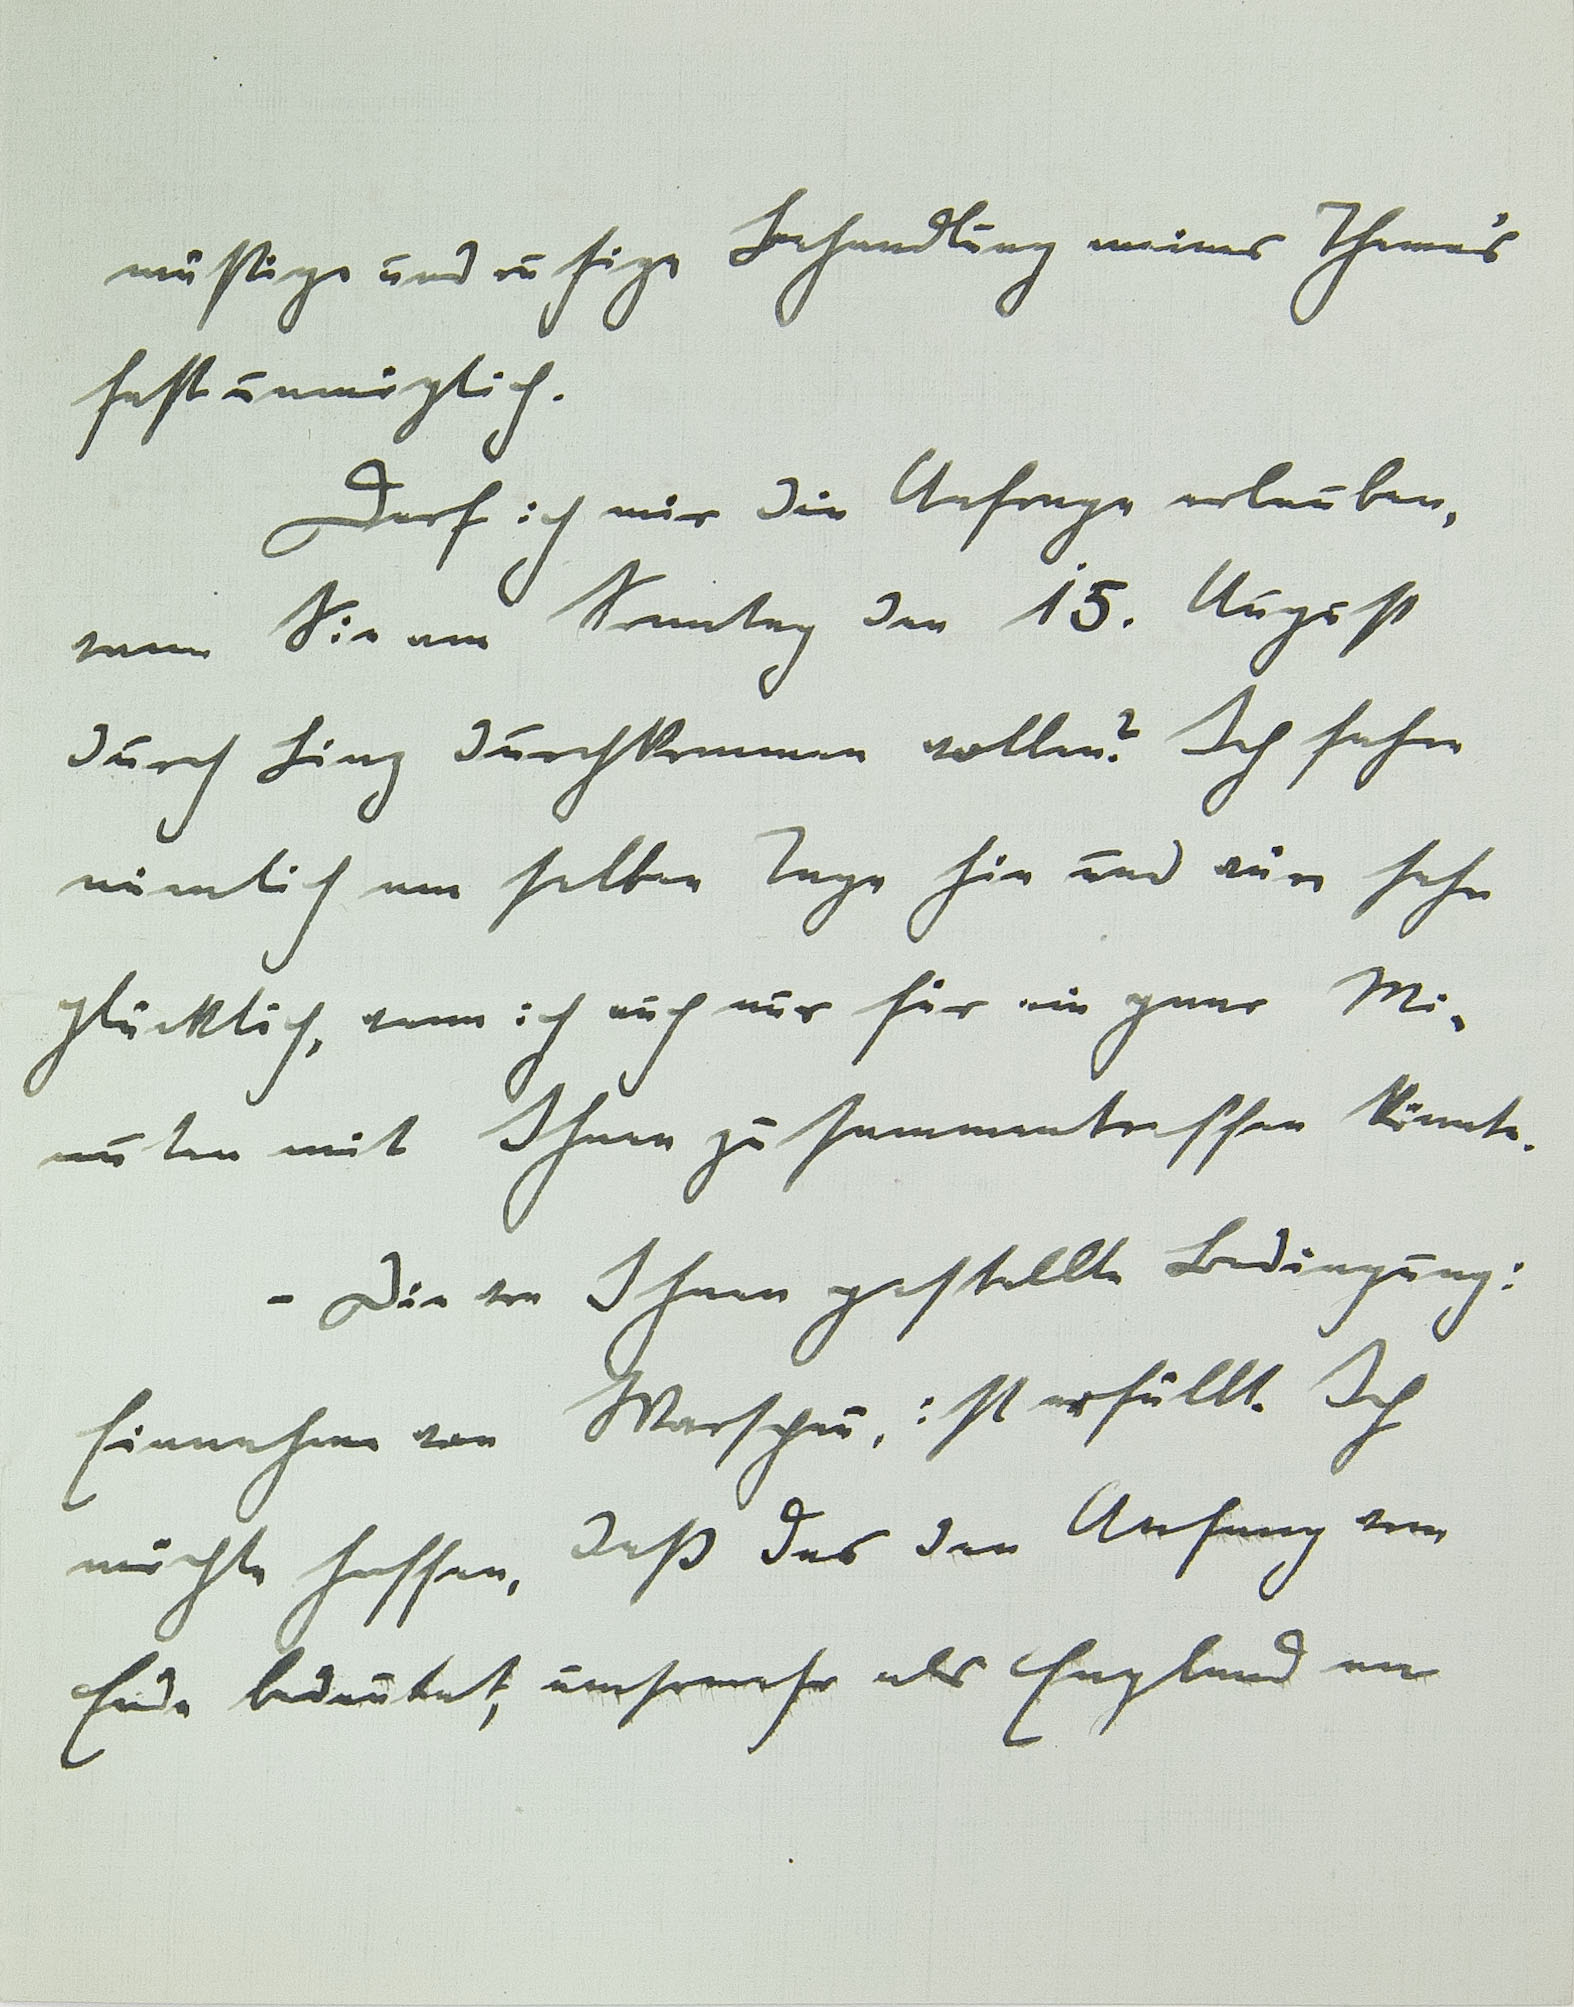 müßige und ruhige Behandlung meines Thema's
fast unmöglich.
Darf ich mir die Anfrage erlauben,
wann Sie am Sonntag den 15. August
durch Linz durchkommen wollen? Ich fahre
nämlich am selben Tage hin und wäre sehr
glücklich, wenn ich auch nur für ein paar Mi-
nuten mit Ihnen zusammentreffen könnte.
- Die von Ihnen gestellte Bedingung:
Einnahme von Warschau, ist erfüllt. Ich
möchte hoffen, daß das den Anfang vom
Ende bedeutet, umsomehr als England an